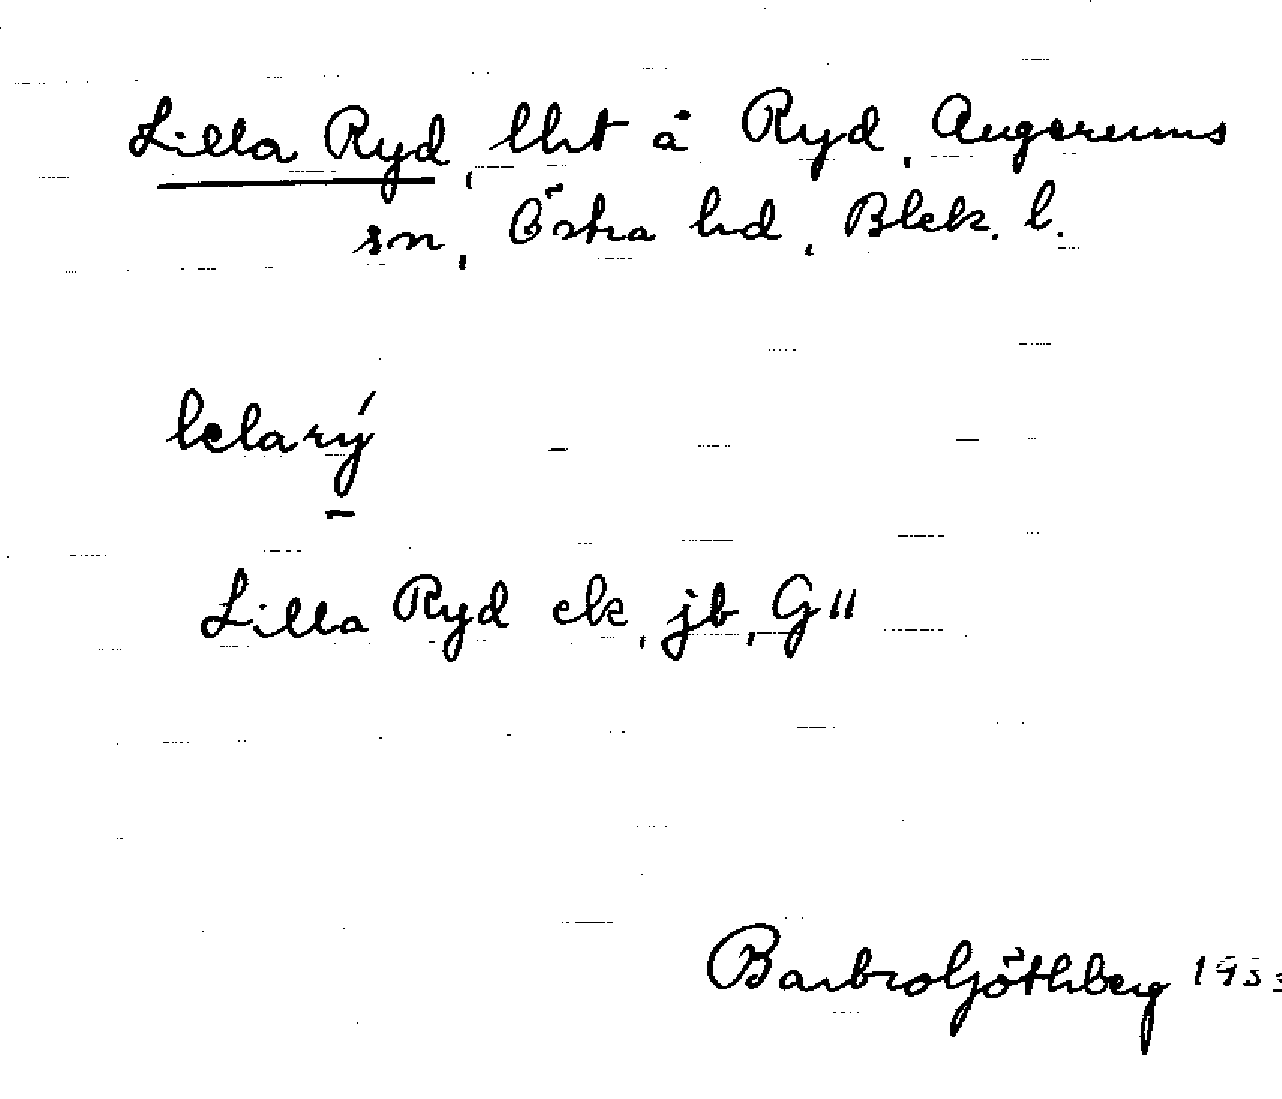 Lilla Ryd, lht å Ryd, Augerums
sn, Östra hd, Blek. l.
lelarý
Lilla Ryd ek, jb, G11
Barbro Göthberg 1933